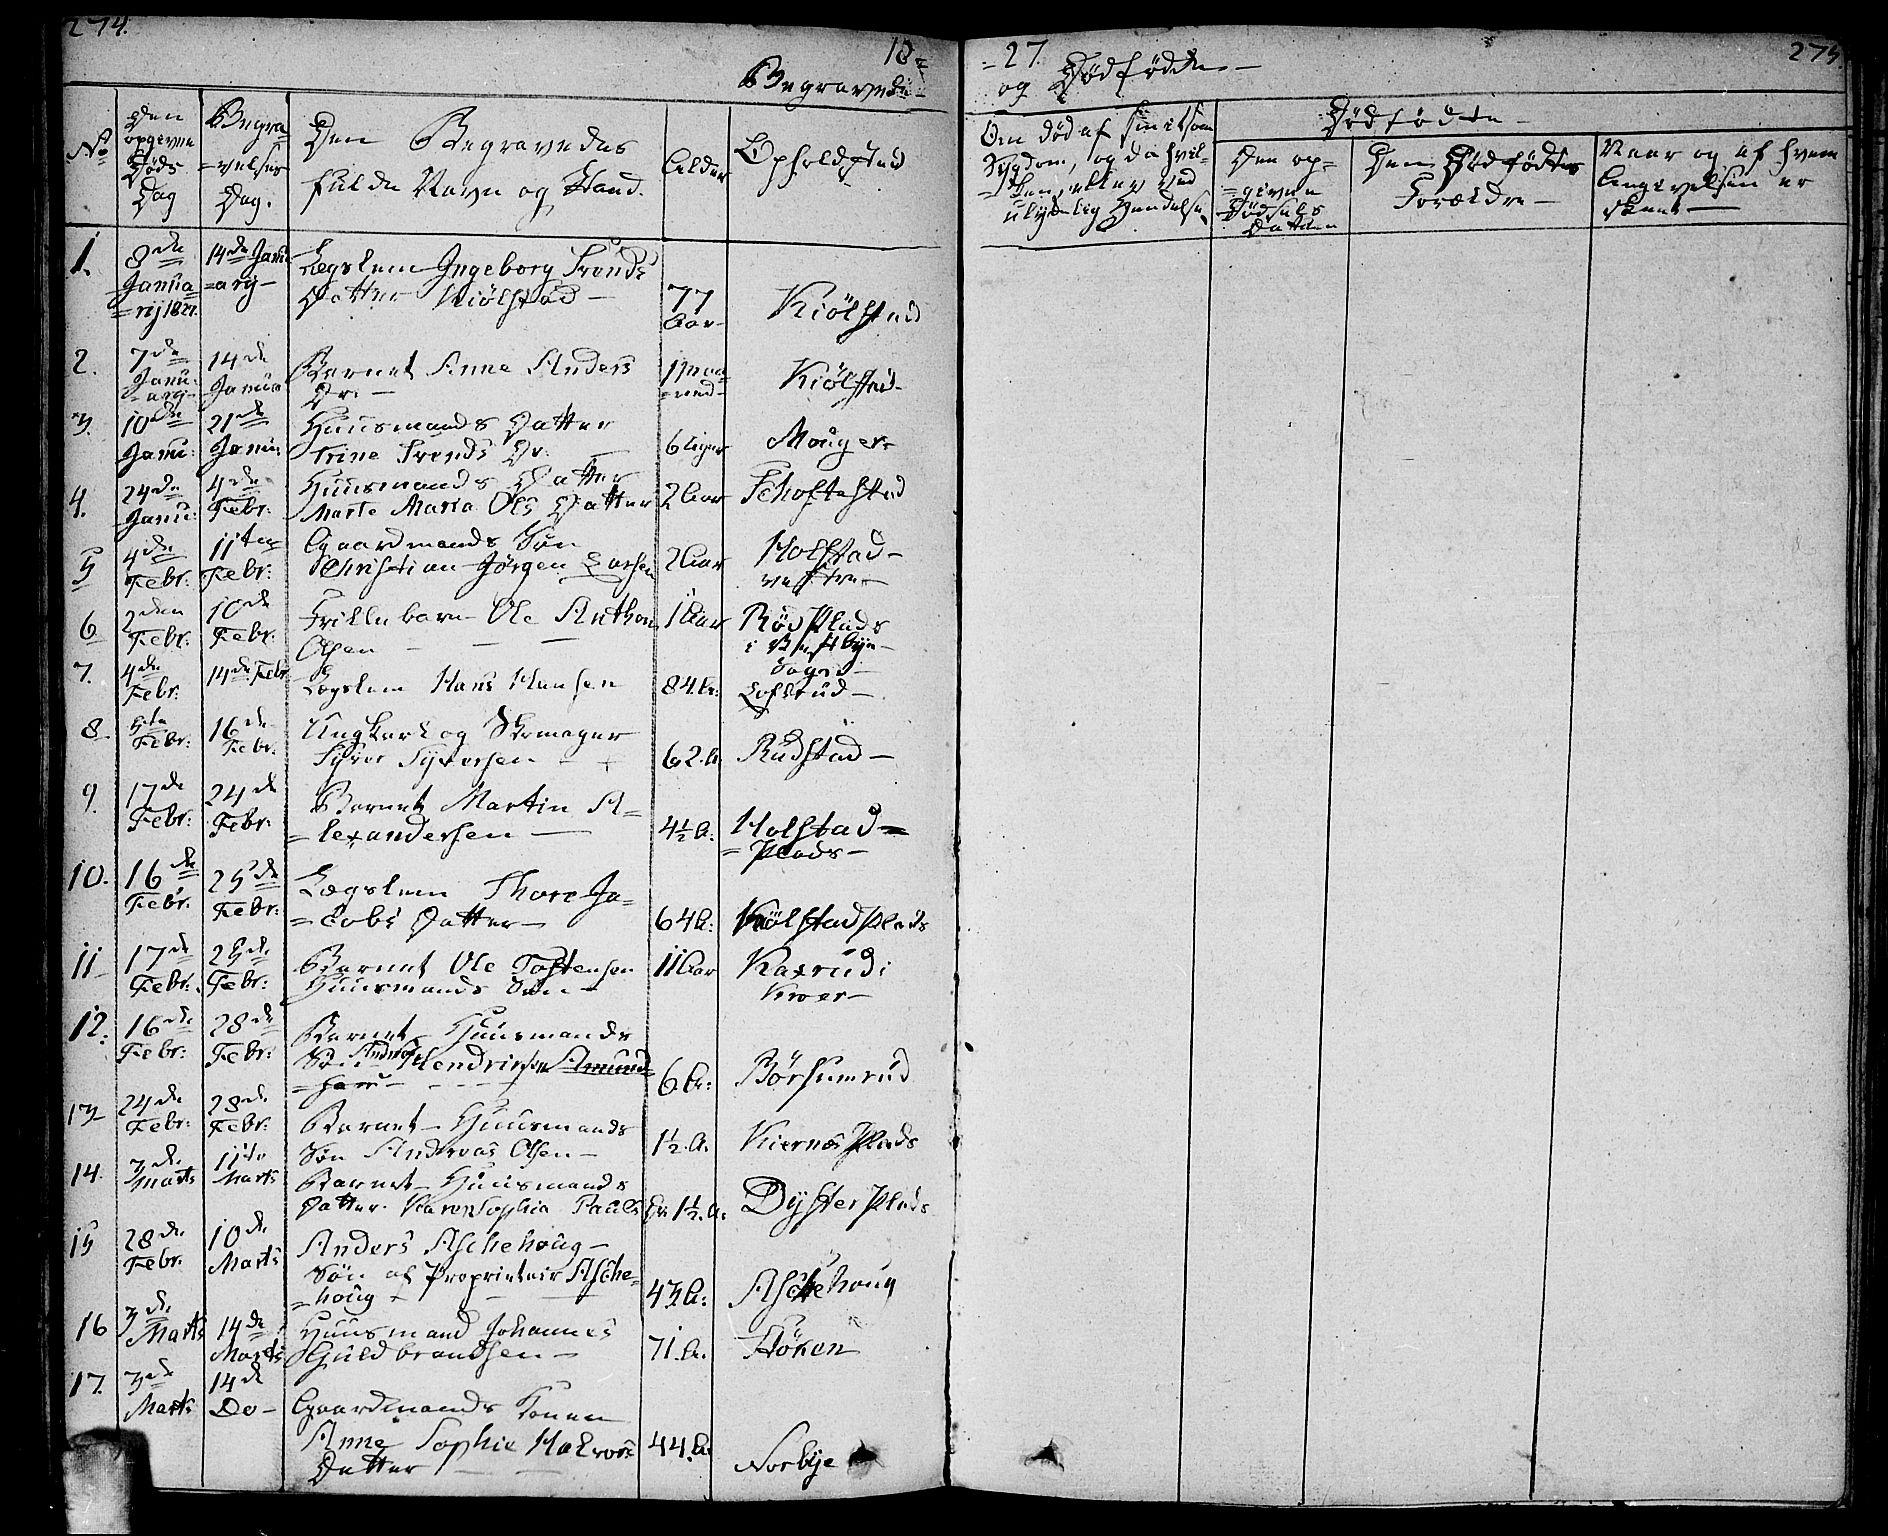 274.
18=
=27.
275.
Begravede
og Dødfødte
No
Den opgivne Døds Dag
Begra=velses Dag.
Den Begravedes fulde Navn og Stand.
Alder
Opholdsted
Om død af smitsom Sygdom, og da hvilken, eller ved ulykkelig Hændelse
Dødfødte
Den op=givne Dødsels Datum
Den Dødfødtes Forældre
Naar og af hvem Angivelsen er skeet
1. 8de Janua=rij 1827. 14de Janu=arij Lægslem Ingeborg Tronds
Datter Kiølstad 77 Aar Kiølstad
2. 7de Janu=arij 14de Janua Barnet Anne Anders
Dr. 1 Maa=ned Kiølstad
3. 10de Janu: 21de Janu: Huusmands Datter
Trine Tronds Dr. 6 Uger Mouger
4. 24de Janu: 4de Febr: Huusmands Datter
Marte Maria Ols Datter 2 Aar Schoftestad
5 4de Febr: 11te Febr: Gaardmands Søn
Christian Jørgen Larsen 2 Aar Holstad
vestre
6 2den Febr: 10de Febr: barn Ole Anthon
Olsen 1 Aar Rød Plads
i Vestbye
Sogn
7. 4de Febr: 14de Febr Lægslem Hans Hansen 84 A: Lofsrud
8. 5te Febr: 16de Febr: Ungkarl og Skomager
Syver Syversen 62. A. Rudstad
9. 17de Febr: 24de Febr: Barnet Martin A=
=lexandersen 4½ A: Holstad=
=Plads
10. 16de Febr: 25de Febr: Lægslem Thore Ja=
=cobs Datter 64 A: Kiølstad Plads
11 17de Febr: 25de Febr: Barnet Ole Tostensen
Huusmands Søn 11 Aar Kaxrud i
Kroer
12. 16de Febr: 28de Febr: Barnet Huusmands
Søn Andreas Hendrichsen Amund=
=sen 6 A: Børsumrud
13 24de Febr: 28de Febr: Barnet Huusmands
Søn Andreas Olsen 1½. A. Kiernæs Plads
14. 3de Marts 11te Marts Barnet Huusmands
Datter Karen Sophia Pauls Dr. 1½. A. Dyster Plads
15 28de Febr. 10de Marts Anders Aschehoug
Søn af Proprietair Asche=
=houg 43 A: Aschehoug
16 3de Marts 14de Marts Huusmand Johannes
Guldbrandsen 71. A. Støken
17. 3de Marts 14de Do Gaardmands Konen
Anne Sophie Halvors
Datter 44 A. Norbye